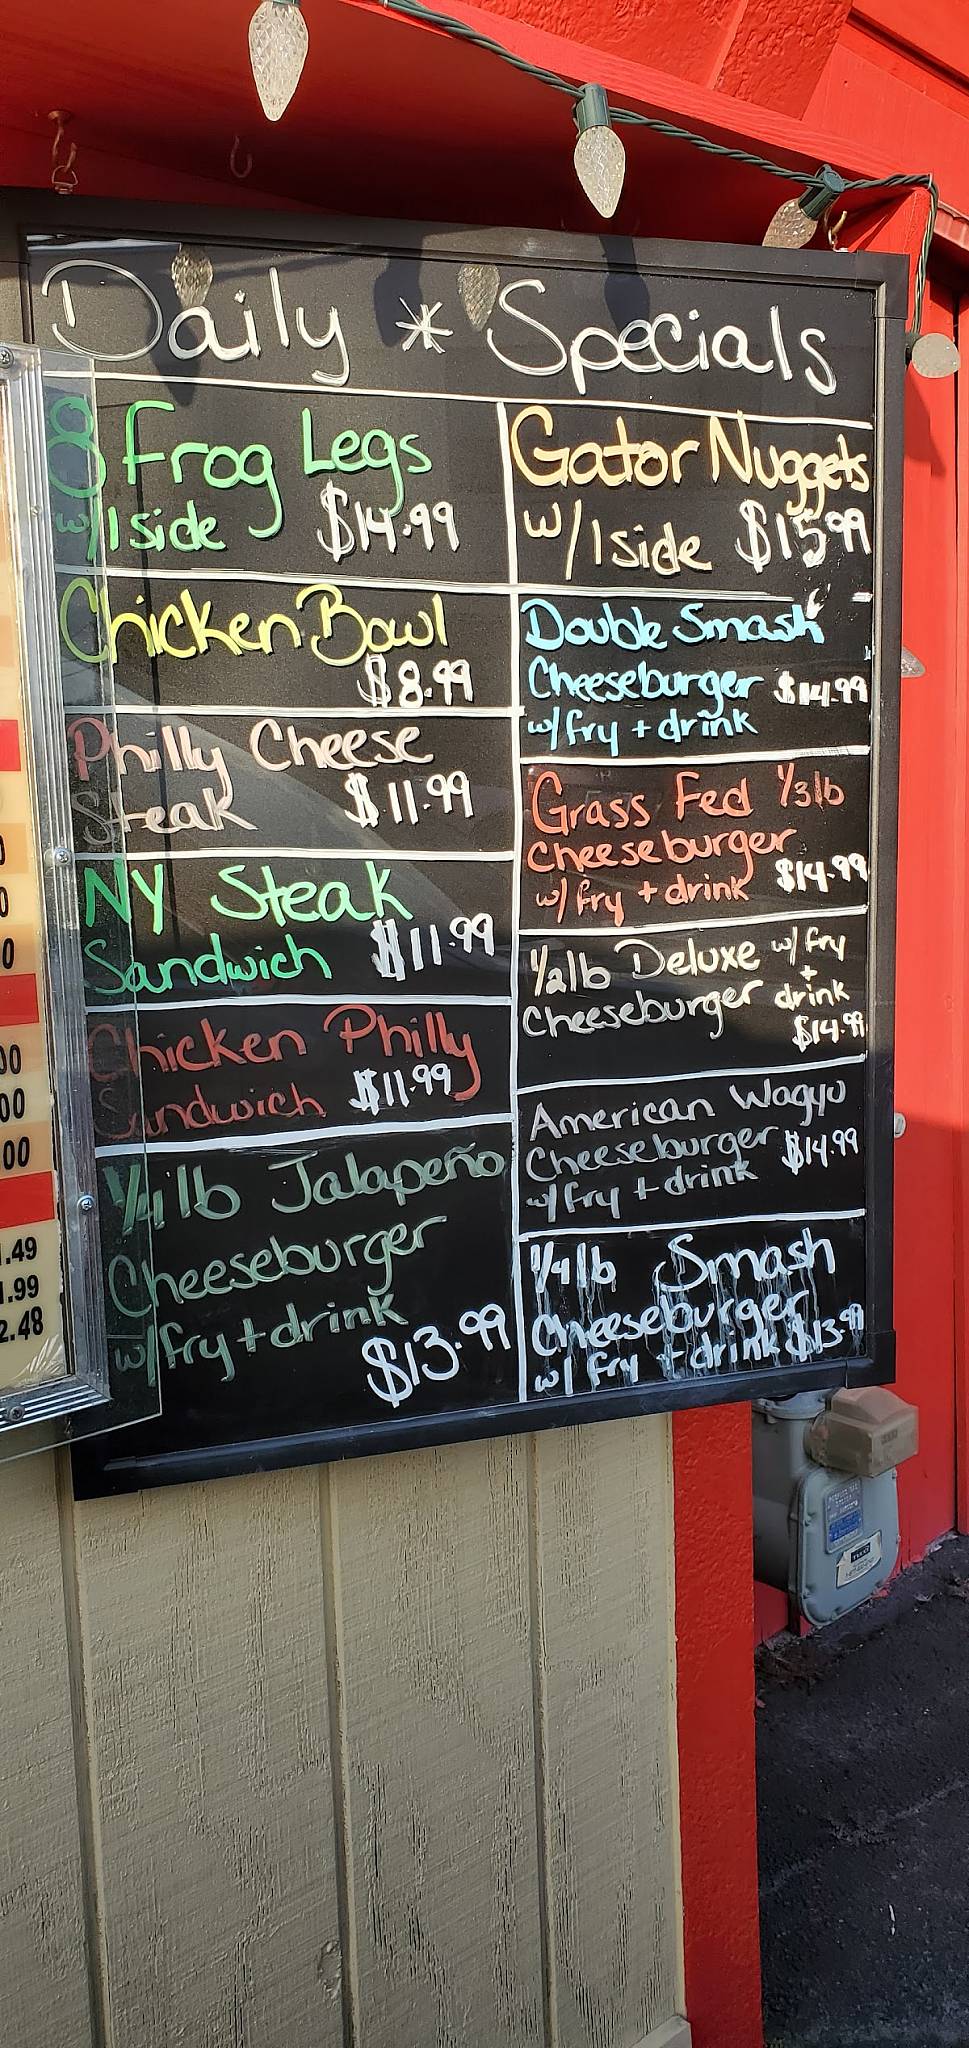 Daily * Specials
8 Frog Legs
w/1 side $14.99
Chicken Bowl
$8.99
Philly Cheese
Steak $11.99
NY Steak
Sandwich $11.99
Chicken Philly
Sandwich $11.99
1/4 lb Jalapeño
Cheeseburger
w/fry + drink
$13.99
Gator Nuggets
w/1 side $15.99
Double Smash
Cheeseburger $14.99
w/fry + drink
Grass Fed 1/3 lb
Cheeseburger
w/fry + drink $14.99
1/2 lb Deluxe w/ fry
+
Cheeseburger drink
$14.99
American Wagyu
Cheeseburger $14.99
w/fry + drink
1/4 lb Smash
Cheeseburger
w/ fry + drink $13.99
.49
.99
2.48